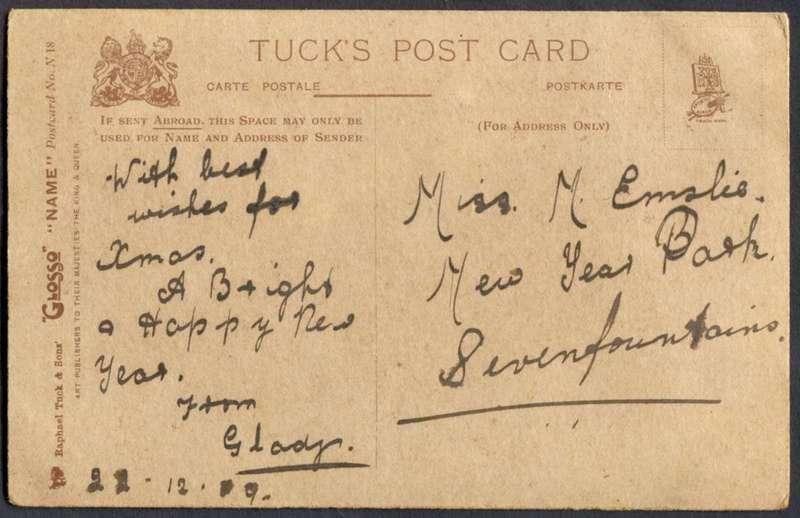 TUCK'S POST CARD
CARTE POSTALE
POSTKARTE
IF SENT ABROAD, THIS SPACE MAY ONLY BE
USED FOR NAME AND ADDRESS OF SENDER
(FOR ADDRESS ONLY)
With best
wishes for
Xmas.
A Bright
a Happy New
Year.
from
Gladys.
22.12.09.
Miss. M. Emslie.
New Year Park.
Sevenfountains.
Raphael Tuck & Sons' "GLOSSO" "NAME" Postcard No. N 18
ART PUBLISHERS TO THEIR MAJESTIES THE KING & QUEEN.